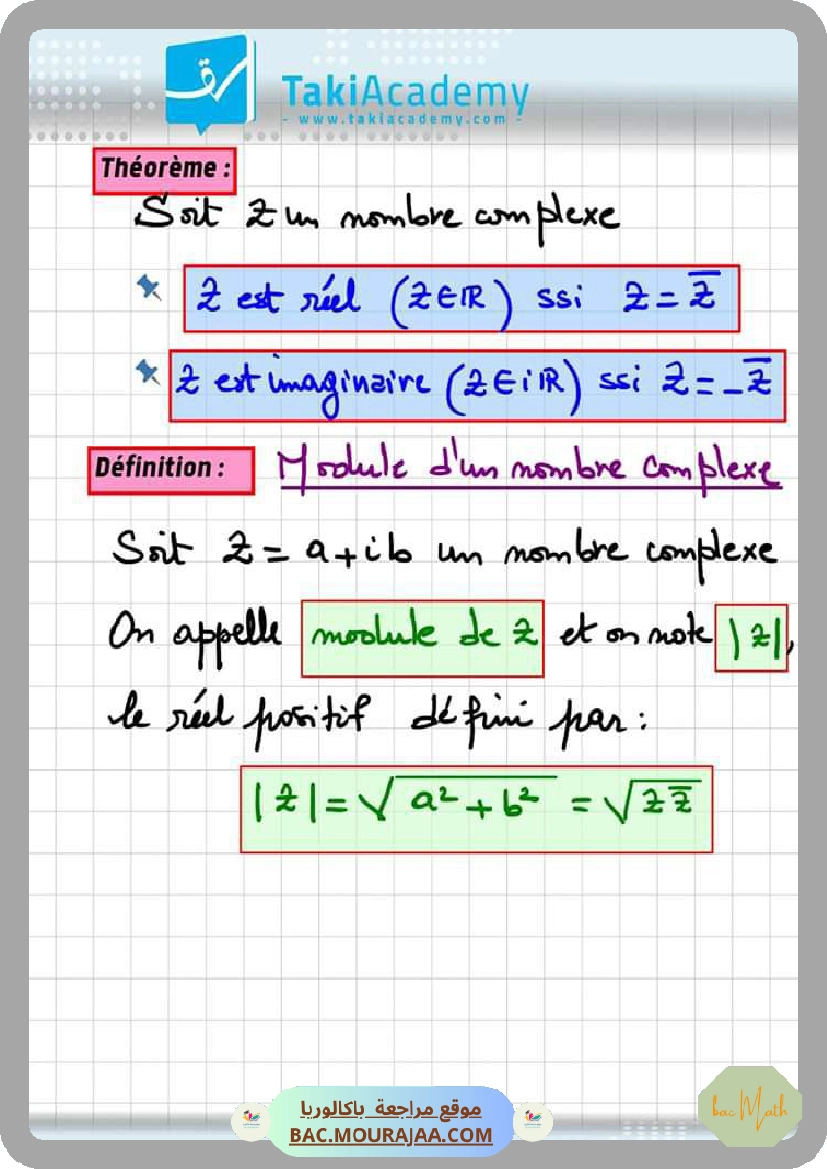 TakiAcademy
- www.takiacademy.com -
Théorème :
Soit z un nombre complexe
z est réel (z ∈ ℝ) ssi z = z̅
z est imaginaire (z ∈ iℝ) ssi z = -z̅
Définition : Module d'un nombre complexe
Soit z = a + ib un nombre complexe
On appelle module de z et on note |z|,
le réel positif défini par :
|z| = √(a² + b²) = √(z z̅)
موقع مراجعة باكالوريا
BAC.MOURAJAA.COM
bac Math